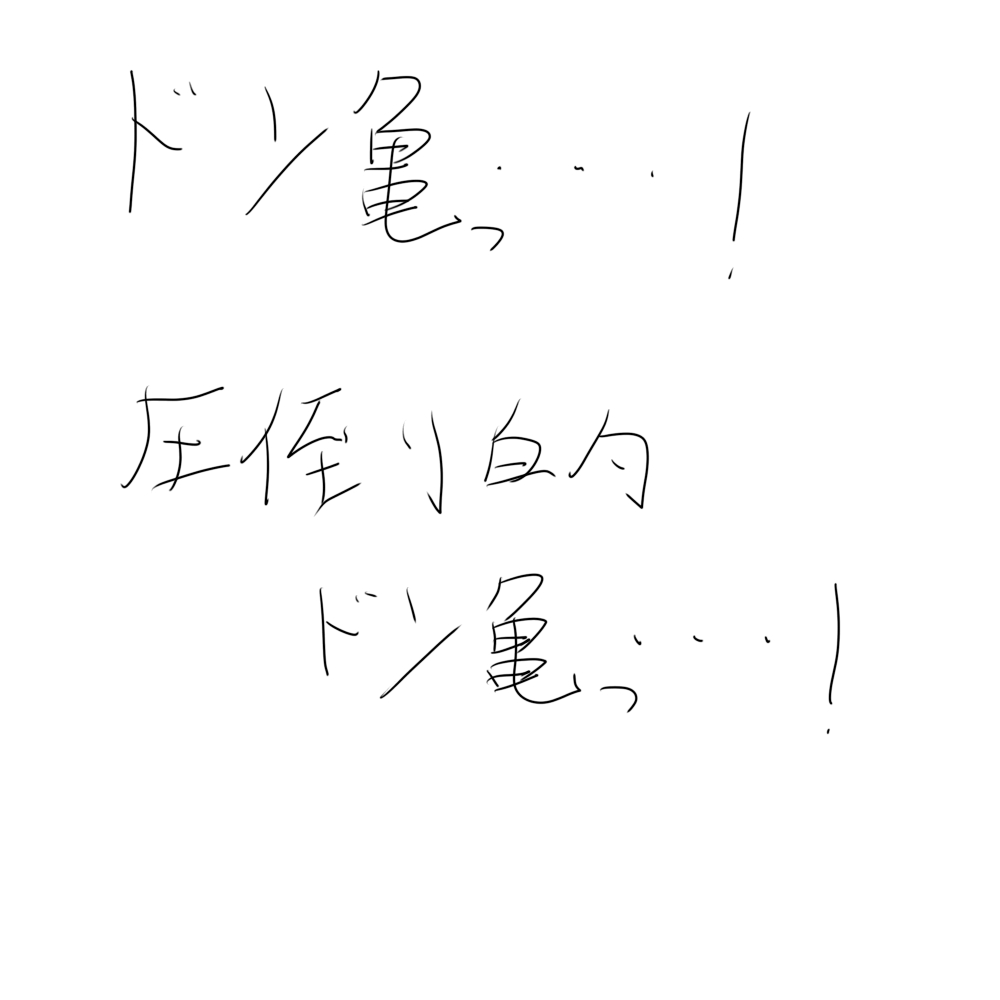 ドン亀っ・・・!
圧倒的
ドン亀っ・・・!